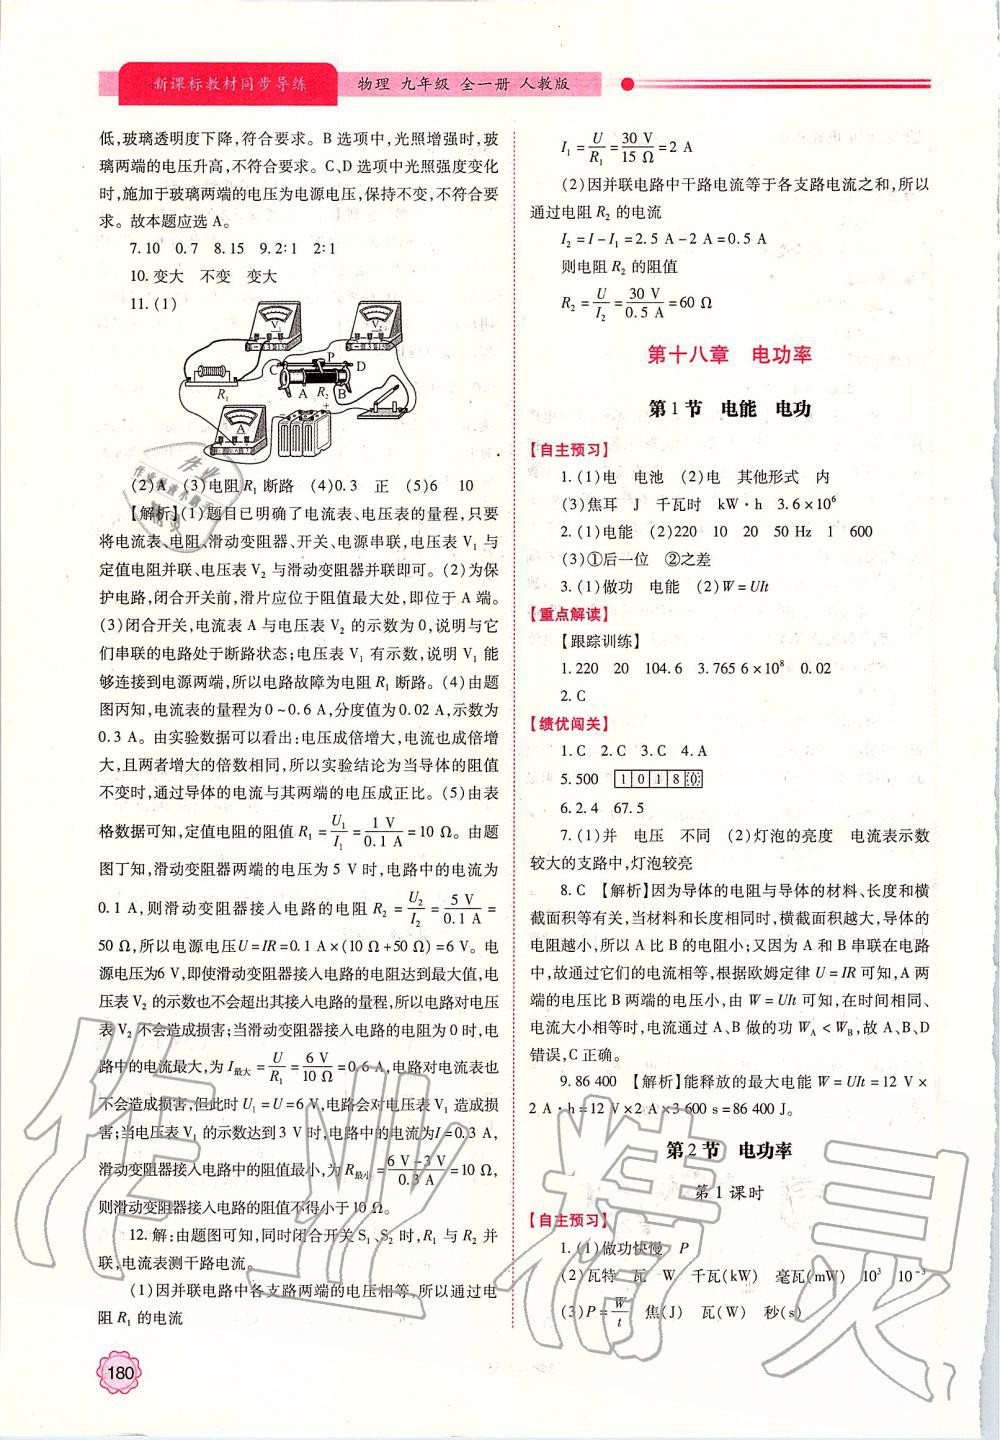 新课标教材同步导练
物理 九年级 全一册 人教版
低,玻璃透明度下降,符合要求。B 选项中,光照增强时,玻
璃两端的电压升高,不符合要求。C、D 选项中光照强度变化
时,施加于玻璃两端的电压为电源电压,保持不变,不符合要
求。故本题应选 A。
7.10 0.7 8.15 9.2∶1 2∶1
10.变大 不变 变大
11.(1)
V₁ V₂
C P D
R₁ A R₂ B
A
(2)A (3)电阻 R₁ 断路 (4)0.3 正 (5)6 10
【解析】(1)题目已明确了电流表、电压表的量程,只要
将电流表、电阻、滑动变阻器、开关、电源串联,电压表 V₁ 与
定值电阻并联、电压表 V₂ 与滑动变阻器并联即可。(2)为保
护电路,闭合开关前,滑片应位于阻值最大处,即位于 A 端。
(3)闭合开关,电流表 A 与电压表 V₂ 的示数为 0,说明与它
们串联的电路处于断路状态;电压表 V₁ 有示数,说明 V₁ 能
够连接到电源两端,所以电路故障为电阻 R₁ 断路。(4)由题
图丙知,电流表的量程为 0~0.6 A,分度值为 0.02 A,示数为
0.3 A。由实验数据可以看出:电压成倍增大,电流也成倍增
大,且两者增大的倍数相同,所以实验结论为当导体的阻值
不变时,通过导体的电流与其两端的电压成正比。(5)由表
格数据可知,定值电阻的阻值 R₁=U₁/I₁=1 V/0.1 A=10 Ω。由题
图丁知,滑动变阻器两端的电压为 5 V 时,电路中的电流为
0.1 A,则滑动变阻器接入电路的电阻 R₂=U₂/I₂=5 V/0.1 A=
50 Ω,所以电源电压 U=IR=0.1 A×(10 Ω+50 Ω)=6 V。电
源电压为6 V,即使滑动变阻器接入电路的电阻达到最大值,电
压表 V₂ 的示数也不会超出其接入电路的量程,所以电路对电压
表 V₂ 不会造成损害;当滑动变阻器接入电路的电阻为 0 时,电
路中的电流最大,为 I最大=U/R₁=6 V/10 Ω=0.6 A,电路对电流表也
不会造成损害,但此时 U₁=U=6 V,电路会对电压表 V₁ 造成损
害;当电压表 V₁ 的示数达到 3 V 时,电路中的电流为 I=0.3 A,
滑动变阻器接入电路中的阻值最小,为 R最小=6 V-3 V/0.3 A=10 Ω,
则滑动变阻器接入电路的阻值不得小于 10 Ω。
12.解:由题图可知,同时闭合开关 S₁、S₂ 时,R₁ 与 R₂ 并
联,电流表测干路电流。
(1)因并联电路中各支路两端的电压相等,所以通过电
阻 R₁ 的电流
180
I₁=U/R₁=30 V/15 Ω=2 A
(2)因并联电路中干路电流等于各支路电流之和,所以
通过电阻 R₂ 的电流
I₂=I-I₁=2.5 A-2 A=0.5 A
则电阻 R₂ 的阻值
R₂=U/I₂=30 V/0.5 A=60 Ω
第十八章 电功率
第 1 节 电能 电功
【自主预习】
1.(1)电 电池 (2)电 其他形式 内
(3)焦耳 J 千瓦时 kW·h 3.6×10⁶
2.(1)电能 (2)220 10 20 50 Hz 1 600
(3)①后一位 ②之差
3.(1)做功 电能 (2)W=UIt
【重点解读】
【跟踪训练】
1.220 20 104.6 3.765 6×10⁸ 0.02
2.C
【绩优闯关】
1.C 2.C 3.C 4.A
5.500 1 0 1 8 0
6.2.4 67.5
7.(1)并 电压 不同 (2)灯泡的亮度 电流表示数
较大的支路中,灯泡较亮
8.C 【解析】因为导体的电阻与导体的材料、长度和横
截面积等有关,当材料和长度相同时,横截面积越大,导体的
电阻越小,所以 A 比 B 的电阻小;又因为 A 和 B 串联在电路
中,故通过它们的电流相等,根据欧姆定律 U=IR 可知,A 两
端的电压比 B 两端的电压小,由 W=UIt 可知,在时间相同、
电流大小相等时,电流通过 A、B 做的功 W_A<W_B,故 A、B、D
错误,C 正确。
9.86 400 【解析】能释放的最大电能 W=UIt=12 V×
2 A·h=12 V×2 A×3 600 s=86 400 J。
第 2 节 电功率
第 1 课时
【自主预习】
1.(1)做功快慢 P
(2)瓦特 瓦 W 千瓦(kW) 毫瓦(mW) 10³ 10⁻³
(3)P=W/t 焦(J) 瓦(W) 秒(s)
作业精灵